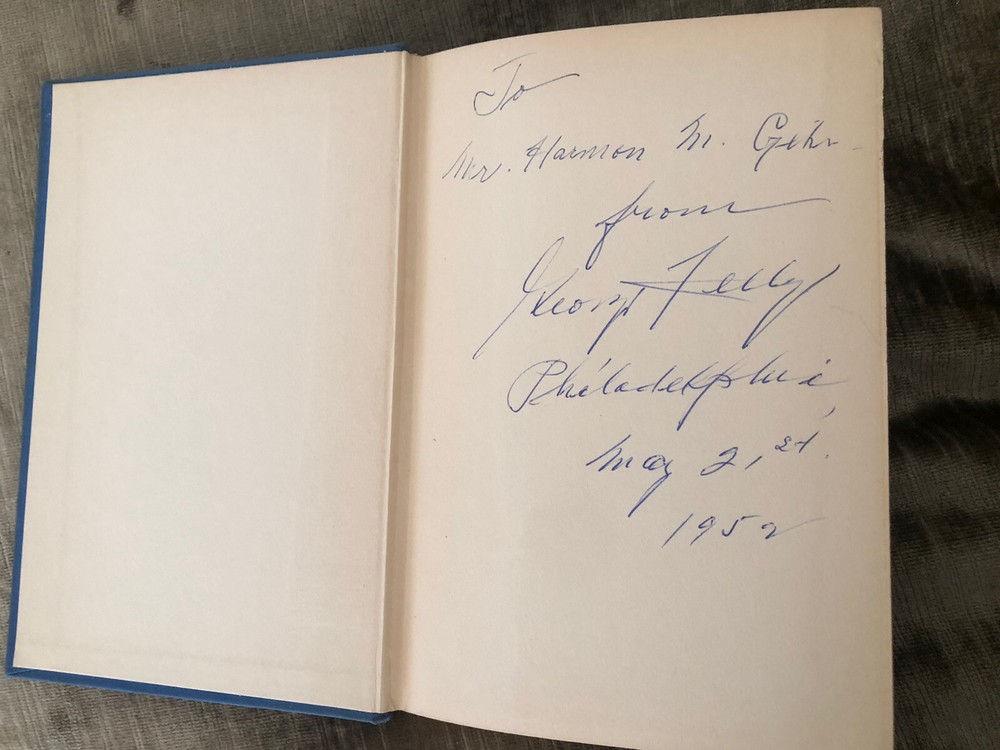 To
Mr. Harmon M. Gehr
from
George
Philadelphia,
May 21st.
1952